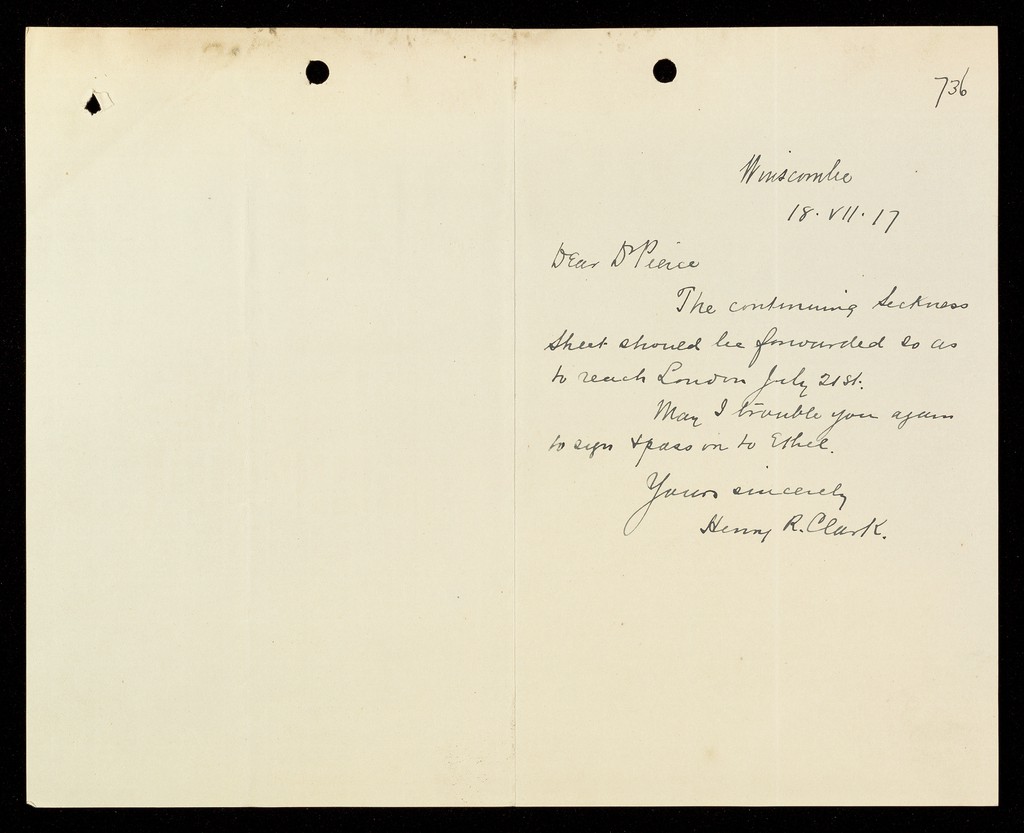 736
Winscombe
18. VII. 17
Dear Dr Pierce
The continuing Sickness
Sheet should be forwarded so as
to reach London July 21st.
May I trouble you again
to sign & pass on to Ethel.
Yours sincerely
Henry R. Clark.